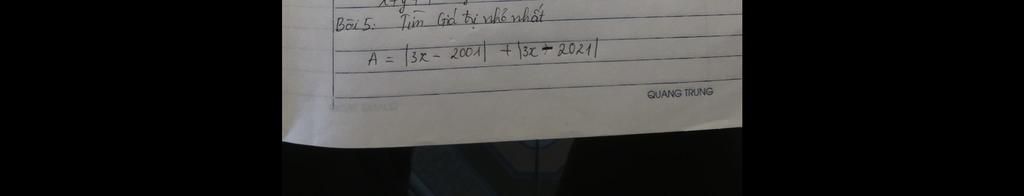 x + y + 1
Bài 5: Tìm Giá trị nhỏ nhất
A = |3x - 2001| + |3x - 2021|
QUANG TRUNG